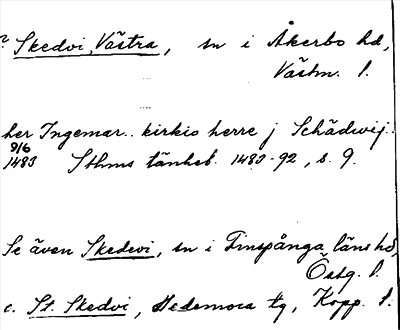 ? Skedvi, Västra, sn i Åkerbo hd,
Västm. l.
her Ingemar.. kirkio herre j Schädwij..
9/6
1483 Sthms tänkeb. 1483-92, s. 9.
Se även Skedevi, sn i Finspånga läns hd,
Östg. l.
o. St. Skedvi, Hedemora tg, Kopp. l.